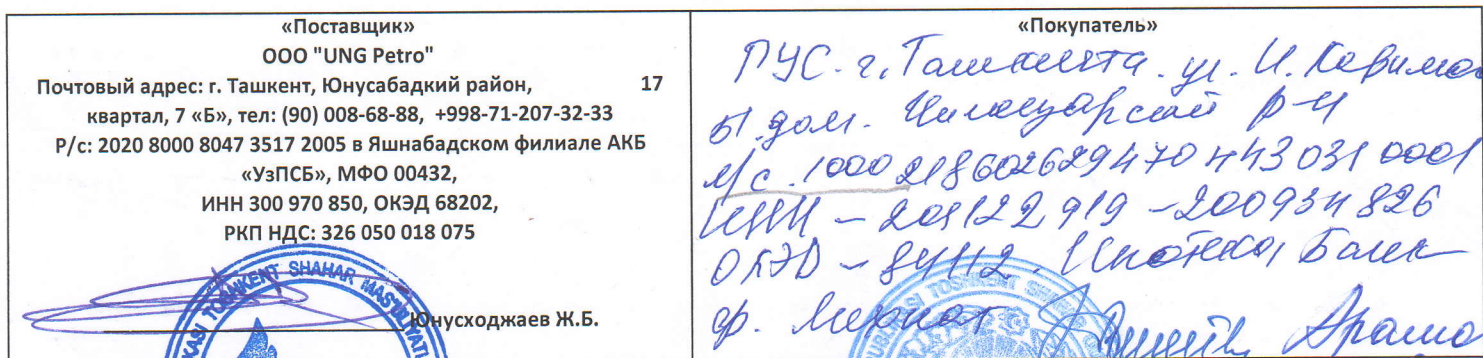 «Поставщик»
ООО "UNG Petro"
Почтовый адрес: г. Ташкент, Юнусабадкий район, 17
квартал, 7 «Б», тел: (90) 008-68-88, +998-71-207-32-33
Р/с: 2020 8000 8047 3517 2005 в Яшнабадском филиале АКБ
«УзПСБ», МФО 00432,
ИНН 300 970 850, ОКЭД 68202,
РКП НДС: 326 050 018 075
TOSHKENT SHAHAR MAS'ULIYATI
Юнусходжаев Ж.Б.
«Покупатель»
ГУС. г. Ташкента. ул. И. Каримова
51 дом. Чиланзарский р-н
л/с. 1000 218602629470443031 0001
ИНН - 201122919 - 200934826
ОКЭД - 84112, Ипотека Банк
ф. Мехнат
TOSHKENT